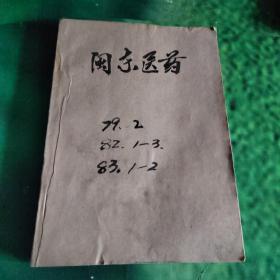 闽东医药
79.2
82.1-3.
83.1-2